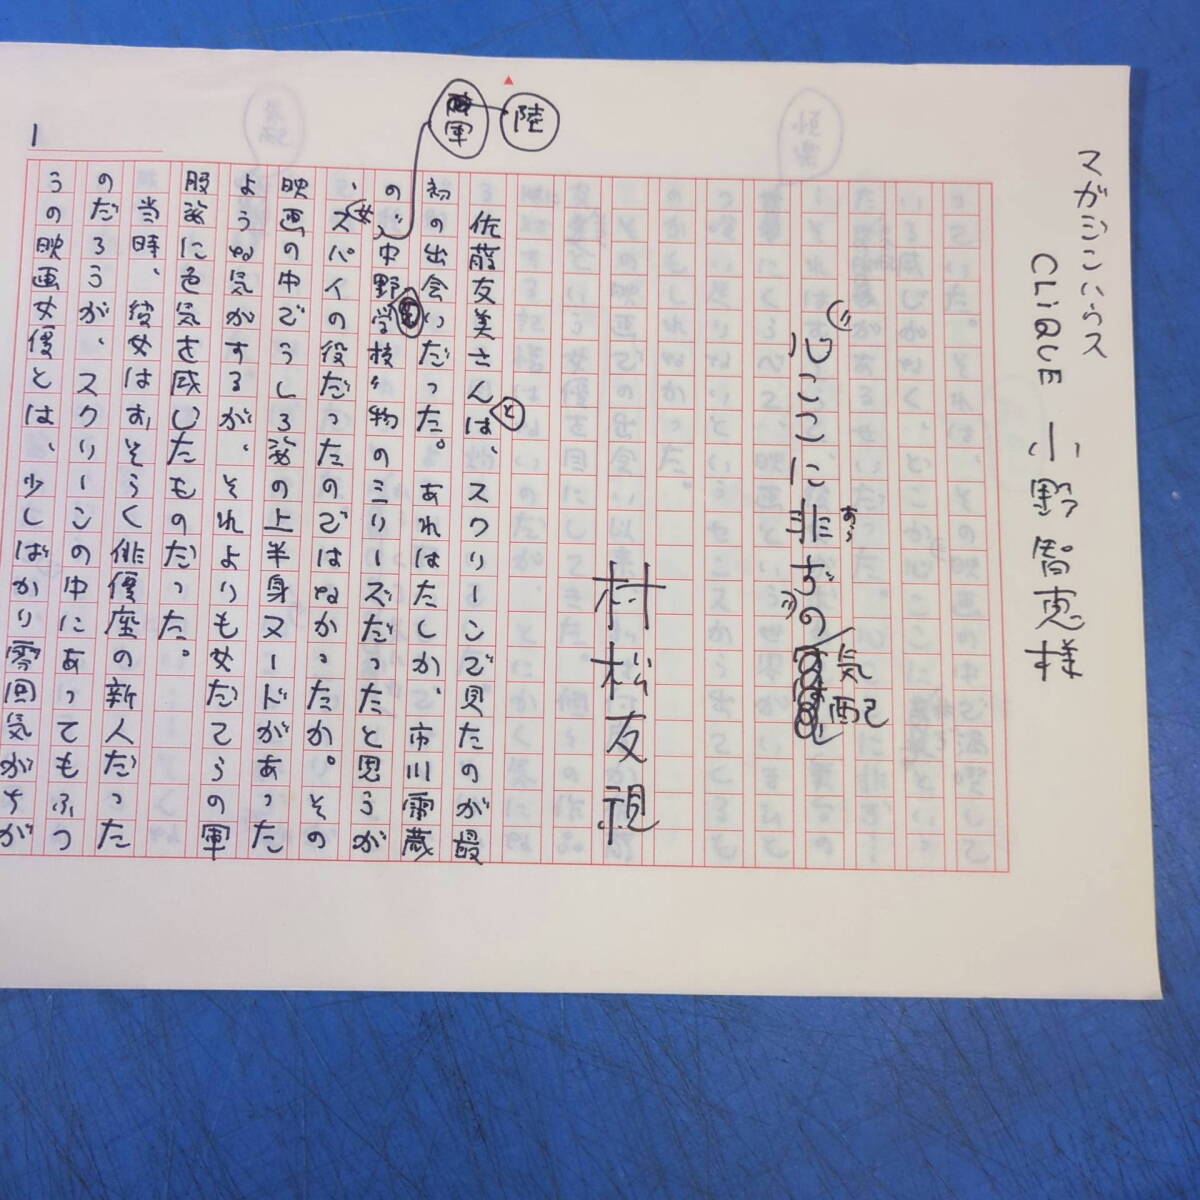 マガジンハウス
CLiQUE 小野智恵様
心ここに非ずの気配
あら
村松友視
佐藤友美さんとは、スクリーンで見たのが最
初の出会いだった。あれはたしか、市川雷蔵
の〝陸軍中野学校〟物のシリーズだったと思うが
、女スパイの役だったのではなかったか。その
映画の中でうしろ姿の上半身ヌードがあった
ような気がするが、それよりも女だてらの軍
服姿に色気を感じたものだった。
当時、彼女はおそらく俳優座の新人だった
のだろうが、スクリーンの中にあってもふつ
うの映画女優とは、少しばかり雰囲気がちが
1